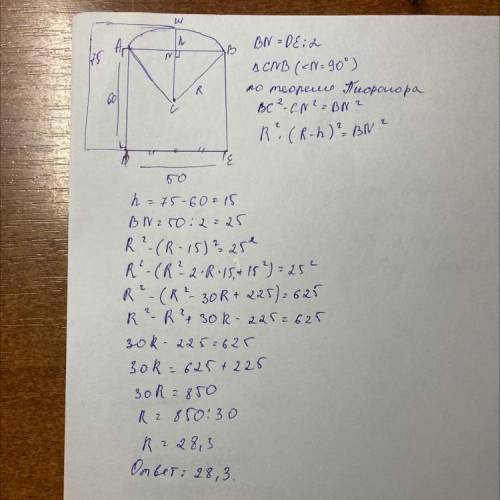 W
75
A
h
B
N
R
60
C
E
50
BN = DE : 2
△CNB (<N=90°)
по теореме Пифагора
BC² - CN² = BN²
R² - (R-h)² = BN²
h = 75 - 60 = 15
BN = 50 : 2 = 25
R² - (R - 15)² = 25²
R² - (R² - 2·R·15 + 15²) = 25²
R² - (R² - 30R + 225) = 625
R² - R² + 30R - 225 = 625
30R - 225 = 625
30R = 625 + 225
30R = 850
R = 850 : 30
R = 28,3
Ответ: 28,3.